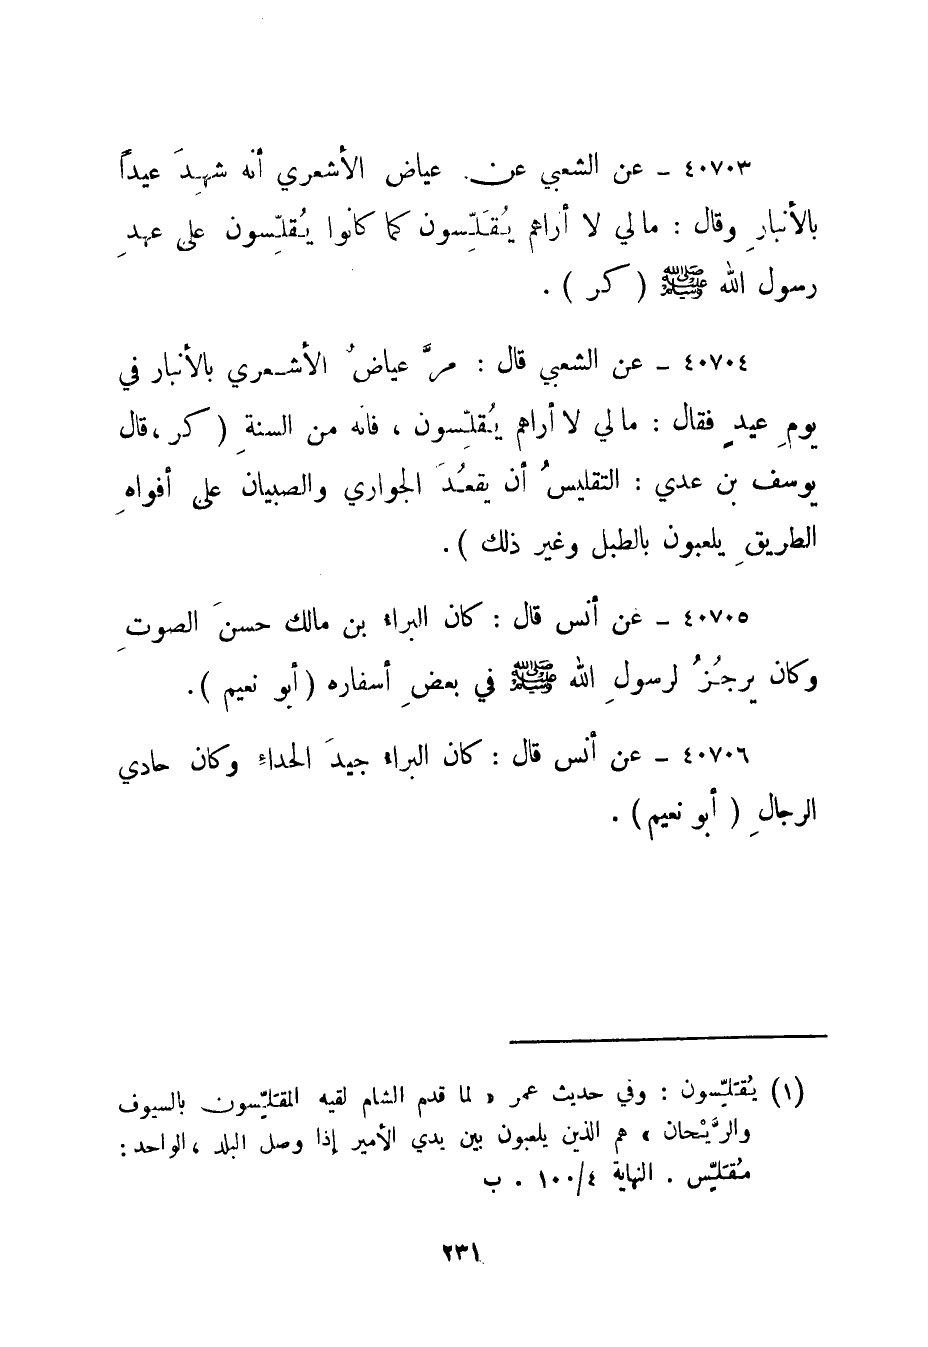 ٤٠٧٠٣ ـ عن الشعبي عن عياض الأشعري أنه شهدَ عيداً
بالأنبارِ وقال : مالي لا أراهم يُقَلِّسون كما كانوا يُقلِّسون على عهدِ
رسول الله ﷺ ( كر ) .
٤٠٧٠٤ ـ عن الشعبي قال : مرَّ عياضُ الأشعري بالأنبار في
يومِ عيدٍ فقال : مالي لا أراهم يُقلِّسون ، فانه من السنةِ ( كر ، قال
يوسف بن عدي : التقليسُ أن يقعُدَ الجواري والصبيان على أفواهِ
الطريقِ يلعبون بالطبل وغير ذلك ) .
٤٠٧٠٥ ـ عن أنس قال : كان البراء بن مالك حسنَ الصوتِ
وكان يرجُزُ لرسولِ الله ﷺ في بعضِ أسفاره ( أبو نعيم ) .
٤٠٧٠٦ ـ عن أنس قال : كان البراء جيدَ الحداءِ وكان حادي
الرجالِ ( أبو نعيم ) .
(١) يُقَلِّسون : وفي حديث عمر « لما قدم الشام لقيه المقلِّسون بالسيوف
والرَّيْحان » هم الذين يلعبون بين يدي الأمير إذا وصل البلد ، الواحد :
مُقَلِّس . النهاية ٤/١٠٠ . ب
٢٣١